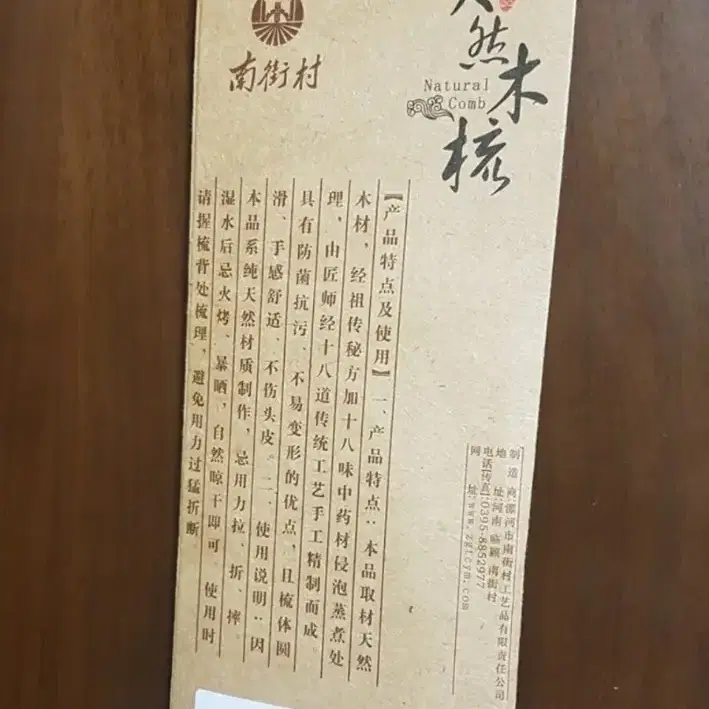 南街村
天然木梳
Natural
Comb
【产品特点及使用】一、产品特点：本品取材天然
木材，经祖传秘方加十八味中药材侵泡蒸煮处
理，由匠师经十八道传统工艺手工精制而成。
具有防菌抗污、不易变形的优点，且梳体圆
滑、手感舒适、不伤头皮。二、使用说明：因
本品系纯天然材质制作，忌用力拉、折、摔。
湿水后忌火烤、暴晒，自然晾干即可。使用时
请握梳背处梳理，避免用力过猛折断
制造商:漯河市南街村工艺品有限责任公司
地址:河南 临颍 南街村
电话[传真]:0395-8852977
网址:www.zgtcym.com